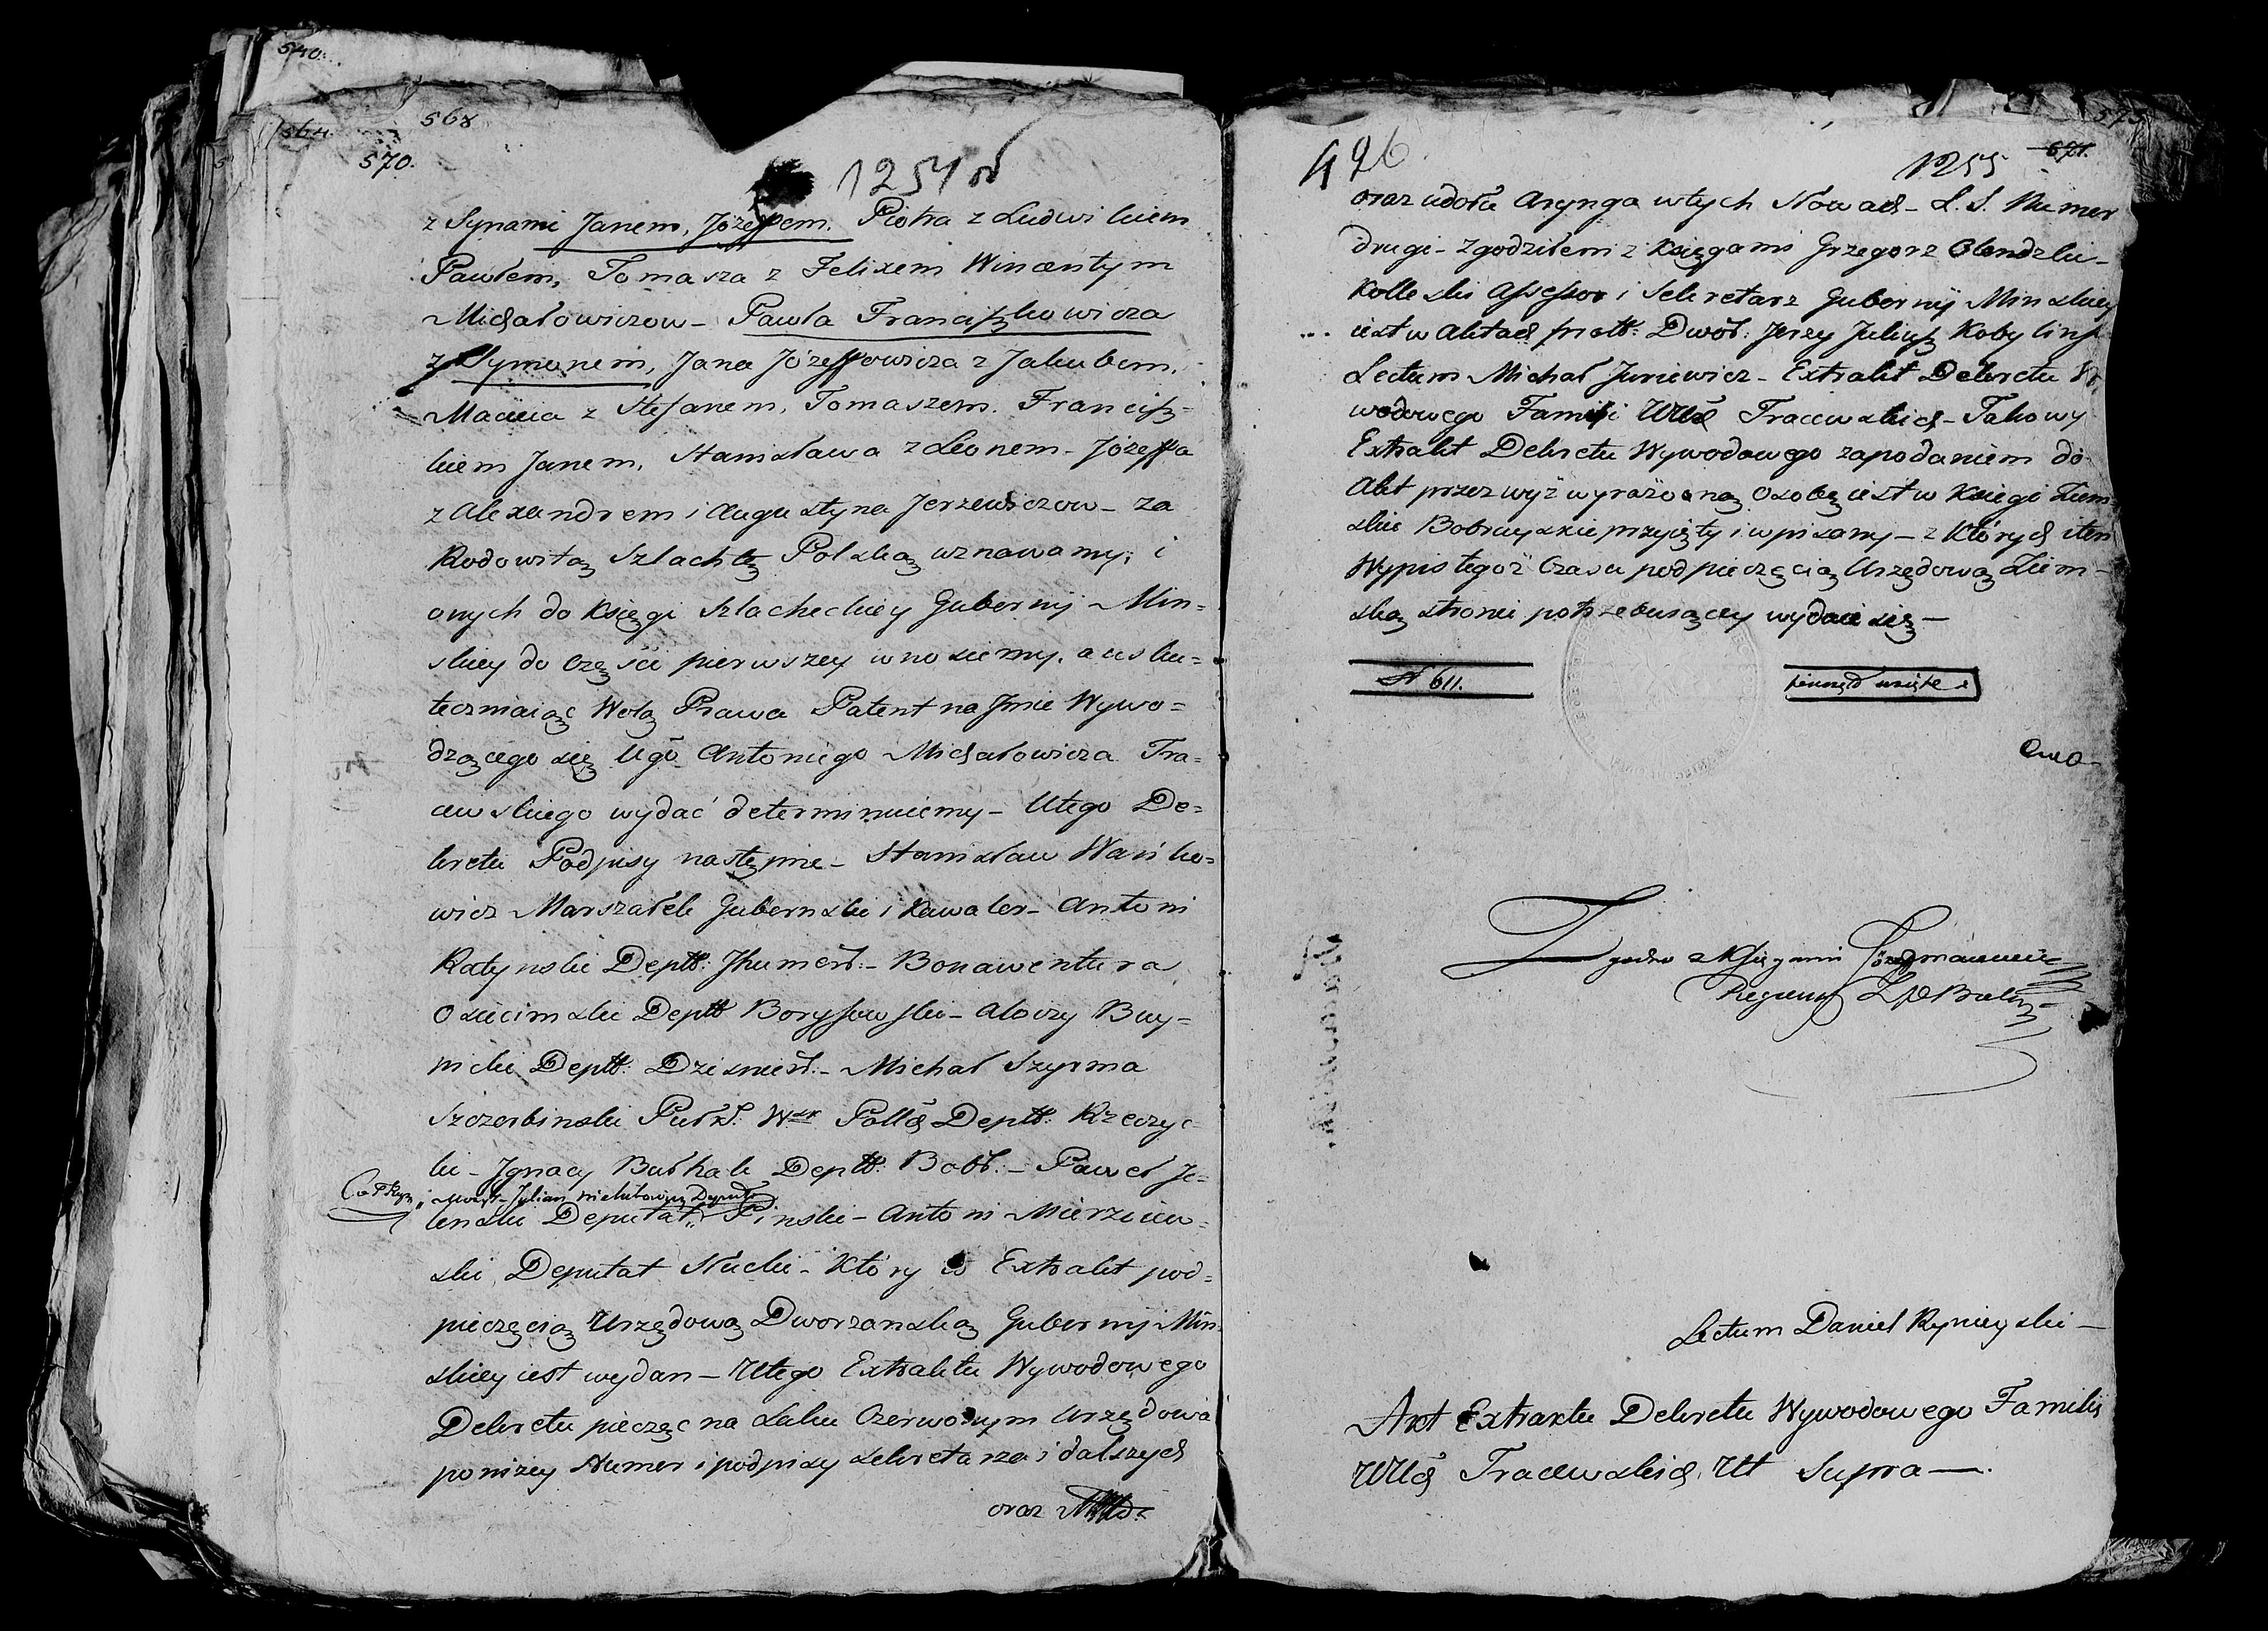 540.
564.
568
570.
1254 
z Synami Janem, Józeffem. Piotra z Ludwikiem
Pawłem, Tomasza z Felixem Wincentym
Michałowiczow – Pawła Franciszkowicza
z Symonem, Jana Józeffowicza z Jakubem,
Macieia z Stefanem, Tomaszem. Francisz=
kiem Janem, Stanisława z Leonem – Józeffa
z Alexandrem i Augustyna Jerzewiczow – za
Rodowitą Szlachtę Polską uznawamy, i
onych do Księgi Szlacheckiey Gubernij Min=
skiey do części pierwszey wnosiemy, a usku=
teczniaiąc Wolą Prawa Patent na Jmie Wywo=
dzącego się Ugo Antoniego Michałowicza Tra=
cewskiego wydać determinuiemy – U tego De=
kretu Podpisy następne – Stanisław Wańko=
wicz Marszałek Gubernski i Kawaler – Antoni
Ratynski Deptt: Jhumeń: – Bonawentura
Osiecimski Deptt Boryssowski – Aloizy Buy=
nicki Deptt: Dzisnień: – Michał Szyrma
Szczerbinski Pułk: Wsk Polls Deptt: Rzeczyc=
ki – Jgnacy Bułhak Deptt: Bobr: – Paweł Je=
Mozyr – Julian Deputat
lenski Deputat Pinski – Antoni Mierzeiew=
ski Deputat Słucki – Który to Extrakt pod=
pieczęcią Urzędową Dworzanską Gubernij Min=
skiey iest wydan – U tego Extraktu Wywodowego
Dekretu pieczęć na Laku Czerwonym Urzędowa
poniżey Numer i podpisy Sekretarza i dalszych
oraz
496
1255
571.
575
oraz udołu Arynga w tych Słowach – L. S. Numer
drugi – Zgodziłem z Księgami Grzegorz Olendzki –
Kolleski Assessor i Sekretarz Gubernij Minskiey
iest w Aktach prott: Dwor: Jerzy Juliusz Kobylins
Lectum Michał Juriewicz – Extrakt Dekretu W
wodowego Familii Tracewskich – Takowy
Extrakt Dekretu Wywodowego za podaniem do
Akt przez wyż wyrażoną Osobę iest w Księgi Ziem=
skie Bobruyskie przyięty i wpisany – z Których i ten
Wypis tegoż Czasu pod pieczęcią Urzędową Ziem=
ską stronie potrzebuiącey wydaie się –
N 611.
pieniędz
Zgodno z Xsięgami
Regient
Lectum Daniel Rynieyski –
Akt Extraktu Dekretu Wywodowego Familij
Tracewskich, Ut Supra –.